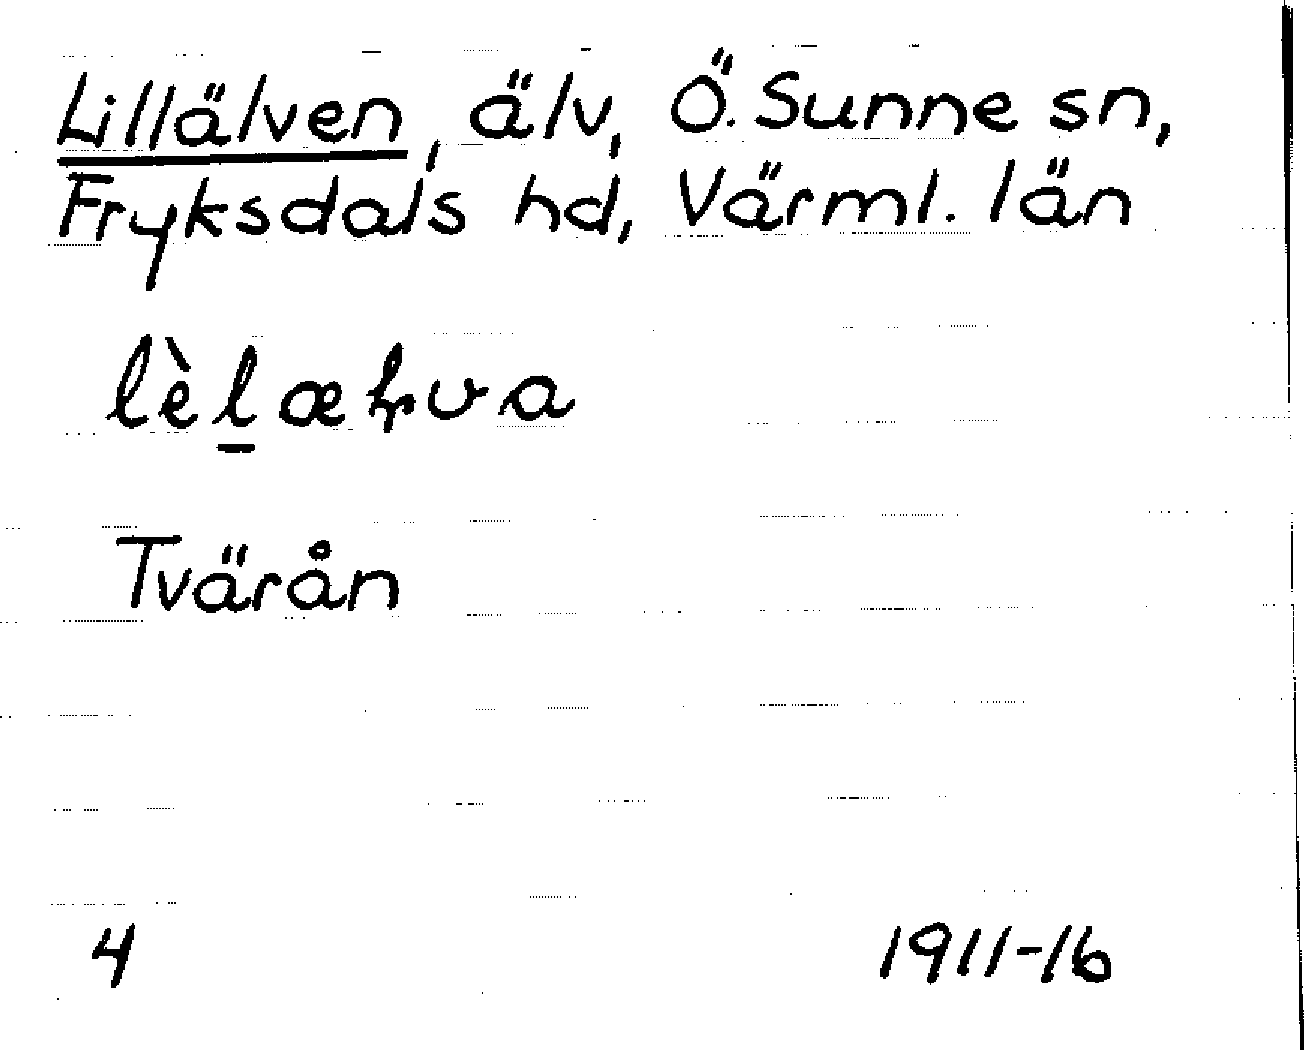 Lillälven, älv, Ö. Sunne sn,
Fryksdals hd, Värml. län
Tvärån
4 1911-16